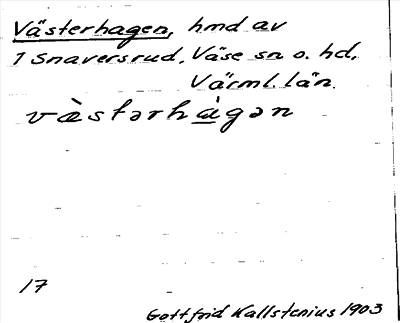 Västerhagen, hmd av
1 Snaversrud, Väse sn o. hd,
Värml. län.
væ̀stərhàgən
17
Gottfrid Kallstenius 1903